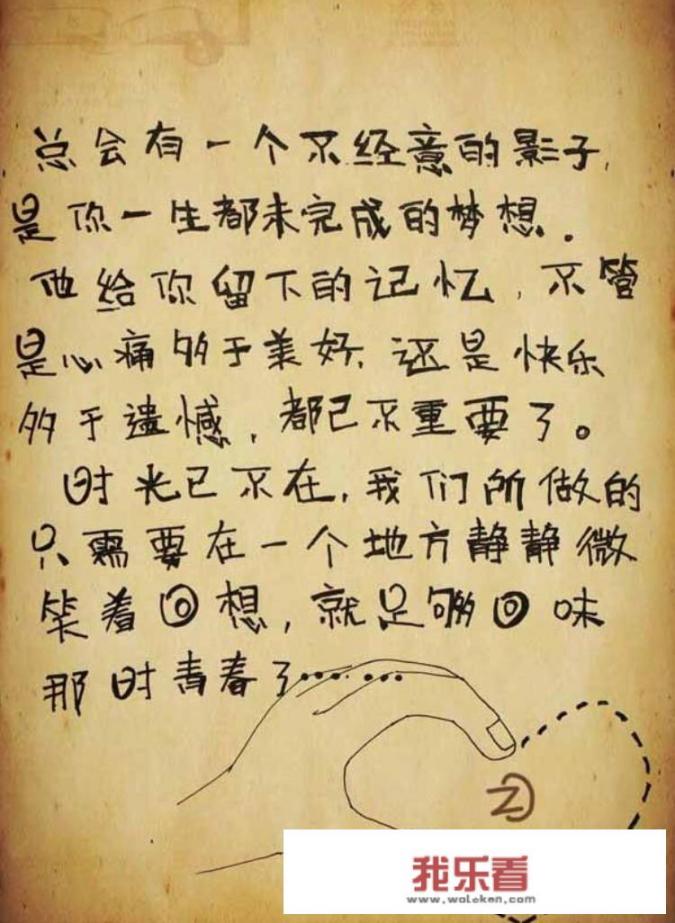 总会有一个不经意的影子,
是你一生都未完成的梦想.
他给你留下的记忆,不管
是心痛多于美好、还是快乐
多于遗憾,都已不重要了。
时光已不在,我们所做的
只需要在一个地方静静微
笑着回想,就足够回味
那时青春了……
我乐看
www.woleken.com